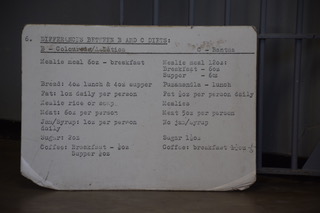 6. DIFFERENCE BETWEEN B AND C DIETS:
B - Coloureds/Asiatics C - Bantus
Mealie meal 6oz - breakfast Mealie meal 12oz:
Breakfast - 6oz
Supper - 6oz
Bread: 4oz lunch & 4oz supper Puzamandla - lunch
Fat: 1oz daily per person Fat ½oz per person daily
Mealie rice or samp. Mealies
Meat: 6oz per person Meat 5oz per person
Jam/Syrup: 1oz per person No jam/syrup
daily
Sugar: 2oz Sugar 1½oz
Coffee: Breakfast - Coffee: breakfast
Supper